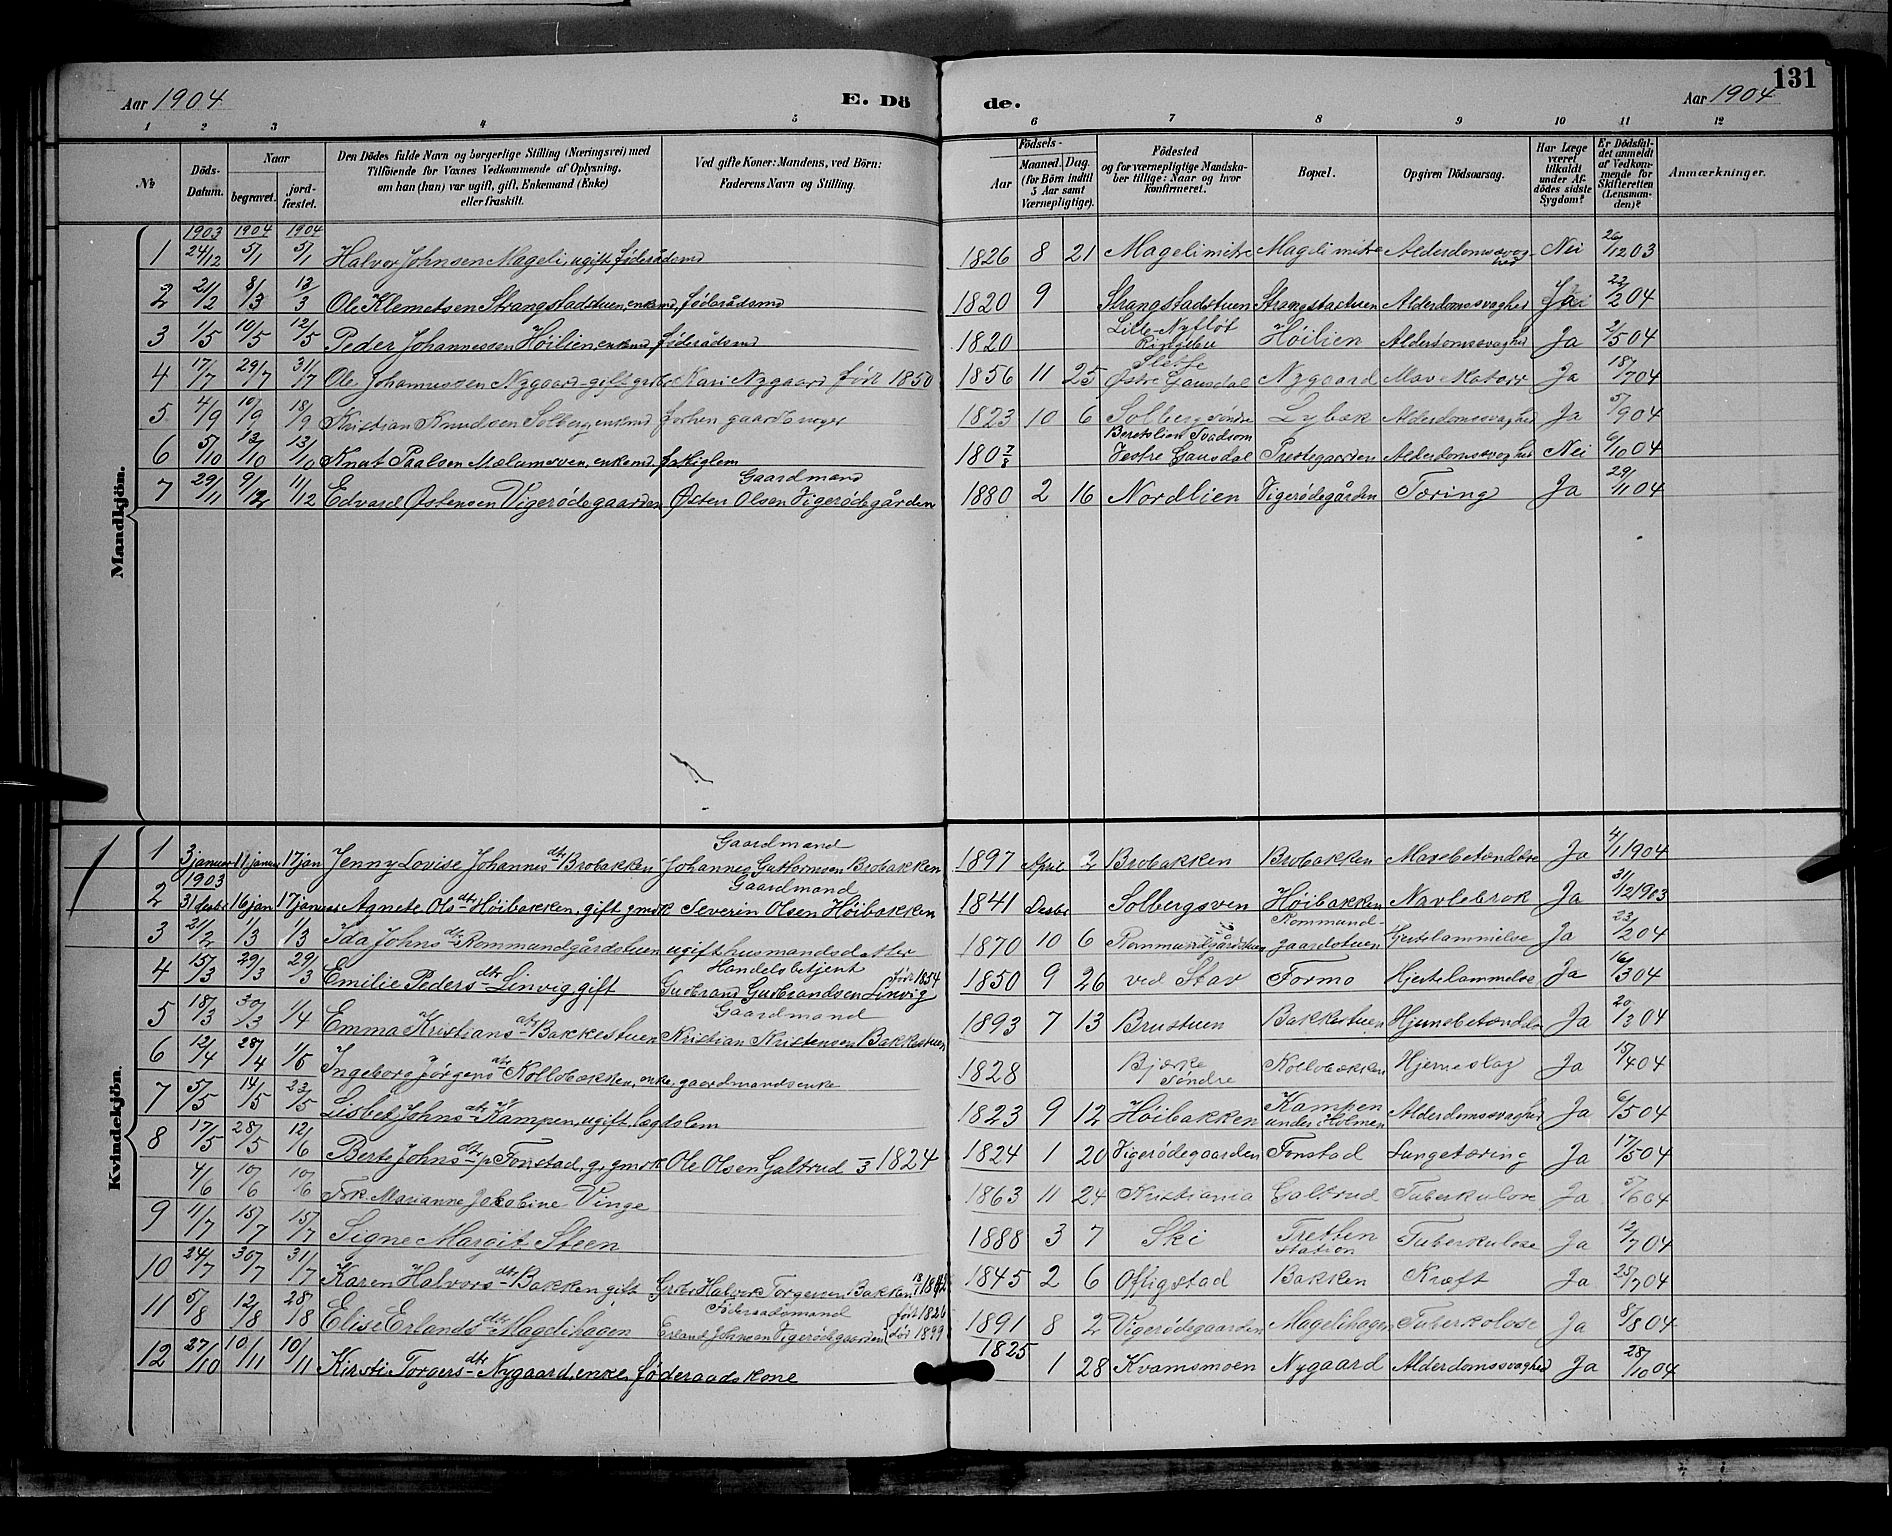 131
Aar 1904 E. Dö de. Aar 1904
1 2 3 4 5 6 7 8 9 10 11 12
№ Döds-Datum. Naar begravet. jordfæstet. Den Dödes fulde Navn og borgerlige Stilling (Næringsvei) med Tilföiende for Voxnes Vedkommende af Oplysning, om han (hun) var ugift, gift, Enkemand (Enke) eller fraskilt. Ved gifte Koner: Mandens, ved Börn: Faderens Navn og Stilling. Födsels- Aar Maaned. Dag. (for Börn indtil 5 Aar samt Værnepligtige). Födested og for værnepligtige Mandskaber tillige: Naar og hvor Konfirmeret. Bopæl. Opgiven Dödsaarsag. Har Læge været tilkaldt under Afdödes sidste Sygdom? Er Dödsfaldet anmeldt af Vedkommende for Skifteretten (Lensmanden)? Anmærkninger.
Mandkjön.
1903 1904 1904
1 24/12 5/1 5/1 Halvor Johnsen Mageli, ugift føderådsmd 1826 8 21 Magelimitre Magelimitre Alderdomssvaghed Nei 26/12 03
2 21/2 8/3 13/3 Ole Klemetsen Strangstadstuen, enkemd, føderådsmd 1820 9 Strangstadstuen Strangstadtuen Alderdomssvaghed Ja 22/2 04
3 1/5 10/5 12/5 Peder Johannessen Høilien, enkemd føderådsmd 1820 Lille-Nyfløt Ringebu Høilien Alderdomssvaghed Ja 2/5 04
4 17/7 29/7 31/7 Ole Johannessen Nygaard gift grbr Kari Nygaard født 1850 1856 11 25 Slette Østre Gausdal Nygaard Mavekatarr Ja 18/7 04
5 4/9 10/9 18/9 Kristian Knudsen Solberg, enkemd forhen gaardbruger 1823 10 6 Solberg søndre Lybæk Alderdomssvaghed Ja 5/9 04
6 5/10 13/10 13/10 Knut Paalsen Mælumsven, enkemd, fattiglem 1807/8 Beretslien Svadsom Vestre Gausdal Prestegaarden Alderdomssvaghed Nei 6/10 04
7 29/11 9/12 11/12 Edvard Østensen Vigerødegaarden Gaardmand Østen Olsen Vigerødegården 1880 2 16 Nordlien Vigerødegården Tæring Ja 29/11 04
Kvindekjön.
1 3 januar 11 januar 17 jan Jenny Lovise Johannesdtr Brobakken Gaardmand Johannes Guttormsen Brobakken 1897 April 2 Brobakken Brobakken Mavebetændelse Ja 4/1 1904
1903
2 31 desbr 16 jan 17 januar Agnete Olsdtr Høibakken, gift gmsk Gaardmand Severin Olsen Høibakken 1841 Desbr Solbergsven Høibakken Navlebrok Ja 31/12 1903
3 21/2 1/3 1/3 Ida Johnsdtr Rommundgårdstuen ugift husmandsdatter 1870 10 6 Rommundgårdstuen Rommundgaardstuen Hjertelammelse Ja 23/2 04
4 15/3 29/3 29/3 Emilie Pedersdtr Linvig gift Handelsbetjent Gudbrand Gudbrandsen Linvig født 1854 1850 9 26 ved Stav Formo Hjertelammelse Ja 16/3 04
5 18/3 30/3 1/4 Emma Kristiansdtr Bakkestuen Gaardmand Kristian Kristensen Bakkestuen 1893 7 13 Brustuen Bakkestuen Hjernebetændelse Ja 20/3 04
6 12/4 28/4 1/5 Ingeborg Jørgensdtr Kollobækken, enke, gaardmandsenke 1828 Bjerke Søndre Kollobækken Hjerneslag Ja 15/4 04
7 5/5 14/5 23/5 Lisbet Johnsdtr Kampen, ugift, lægdslem 1823 9 12 Høibakken Kampen under Holmen Alderdomssvaghed Ja 6/5 04
8 17/5 28/5 12/6 Berte Johnsdtr Fonstad, g, gmsk Ole Olsen Galtrud /3 1824 1824 1 20 Vigerødegaarden Fonstad Lungetæring Ja 17/5 04
4/6 10/6 10/6 Frk. Marianne Jakobine Vinge 1863 11 24 Kristiania Galtrud Tuberkulose Ja 5/6 04
9 11/7 15/7 15/7 Signe Margit Steen 1888 3 7 Ski Tretten station Tuberkulose Ja 12/7 04
10 24/7 30/7 31/7 Karen Halvorsdtr Bakken gift Grbr Halvor Torgersen Bakken 1845 2 6 Offigstad Bakken Kræft Ja 25/7 04
11 5/8 12/8 28/8 Elise Erlandsdtr Magelihagen Føderaadsmand Erland Johnsen Vigerødegaarden født 1826 død 1899 1891 8 2 Vigerødegaarden Magelihagen Tuberkulose Ja 8/8 04
12 27/10 10/11 10/11 Kirsti Torgersdtr Nygaard, enke, føderaadskone 1825 1 28 Kvamsmoen Nygaard Alderdomssvaghed Ja 28/10 04